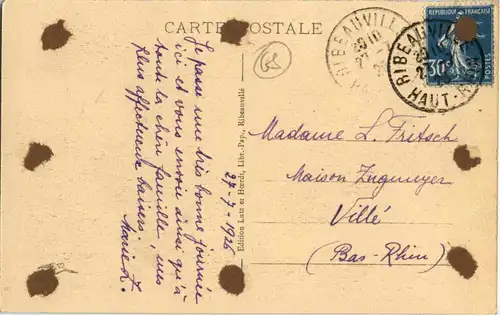 CARTE POSTALE
Je passe une très bonne journée
ici et vous envoie ainsi qu'à
toute la chère famille, mes
plus affectueux baisers.
Marie L.
27-7-1926
Edition Lutz et Hoerdt, Libr.-Pap., Ribeauvillé
RIBEAUVILLÉ
RÉPUBLIQUE FRANÇAISE
30c
POSTES
RIBEAUVILLÉ
HAUT-RHIN
Madame L. Fritsch
Maison Zugmeyer
Villé
(Bas-Rhin)